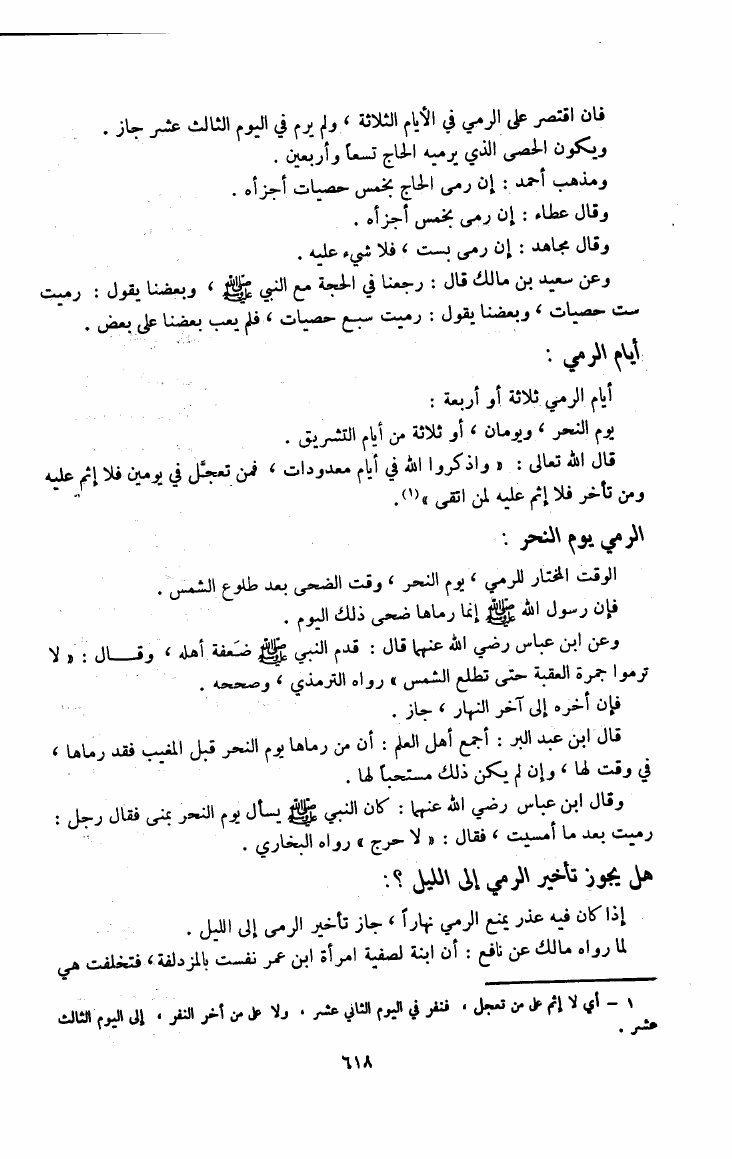 فان اقتصر على الرمي في الأيام الثلاثة ، ولم يرم في اليوم الثالث عشر جاز .
ويكون الحصى الذي يرميه الحاج تسعاً وأربعين .
ومذهب أحمد : إن رمى الحاج بخمس حصيات أجزأه .
وقال عطاء : إن رمى بخمس أجزأه .
وقال مجاهد : إن رمى بست ، فلا شيء عليه .
وعن سعيد بن مالك قال : رجعنا في الحجة مع النبي ﷺ ، وبعضنا يقول : رميت
ست حصيات ، وبعضنا يقول : رميت سبع حصيات ، فلم يعب بعضنا على بعض .
أيام الرمي :
أيام الرمي ثلاثة أو أربعة :
يوم النحر ، ويومان ، أو ثلاثة من أيام التشريق .
قال الله تعالى : « واذكروا الله في أيام معدودات ، فمن تعجَّل في يومين فلا إثم عليه
ومن تأخر فلا إثم عليه لمن اتقى » (١).
الرمي يوم النحر :
الوقت المختار للرمي ، يوم النحر ، وقت الضحى بعد طلوع الشمس .
فإن رسول الله ﷺ إنما رماها ضحى ذلك اليوم .
وعن ابن عباس رضي الله عنهما قال : قدم النبي ﷺ ضَعفة أهله ، وقـــال : « لا
ترموا جمرة العقبة حتى تطلع الشمس » رواه الترمذي ، وصححه .
فإن أخره إلى آخر النهار ، جاز .
قال ابن عبد البر : أجمع أهل العلم : أن من رماها يوم النحر قبل المغيب فقد رماها ،
في وقت لها ، وإن لم يكن ذلك مستحباً لها .
وقال ابن عباس رضي الله عنهما : كان النبي ﷺ يسأل يوم النحر بمنى فقال رجل :
رميت بعد ما أمسيت ، فقال : « لا حرج » رواه البخاري .
هل يجوز تأخير الرمي إلى الليل ؟:
إذا كان فيه عذر يمنع الرمي نهاراً ، جاز تأخير الرمى إلى الليل .
لما رواه مالك عن نافع : أن ابنة لصفية امرأة ابن عمر نفست بالمزدلفة ، فتخلفت هي
١ – أي لا إثم على من تعجل ، فنفر في اليوم الثاني عشر ، ولا على من أخر النفر ، إلى اليوم الثالث
عشر .
٦١٨